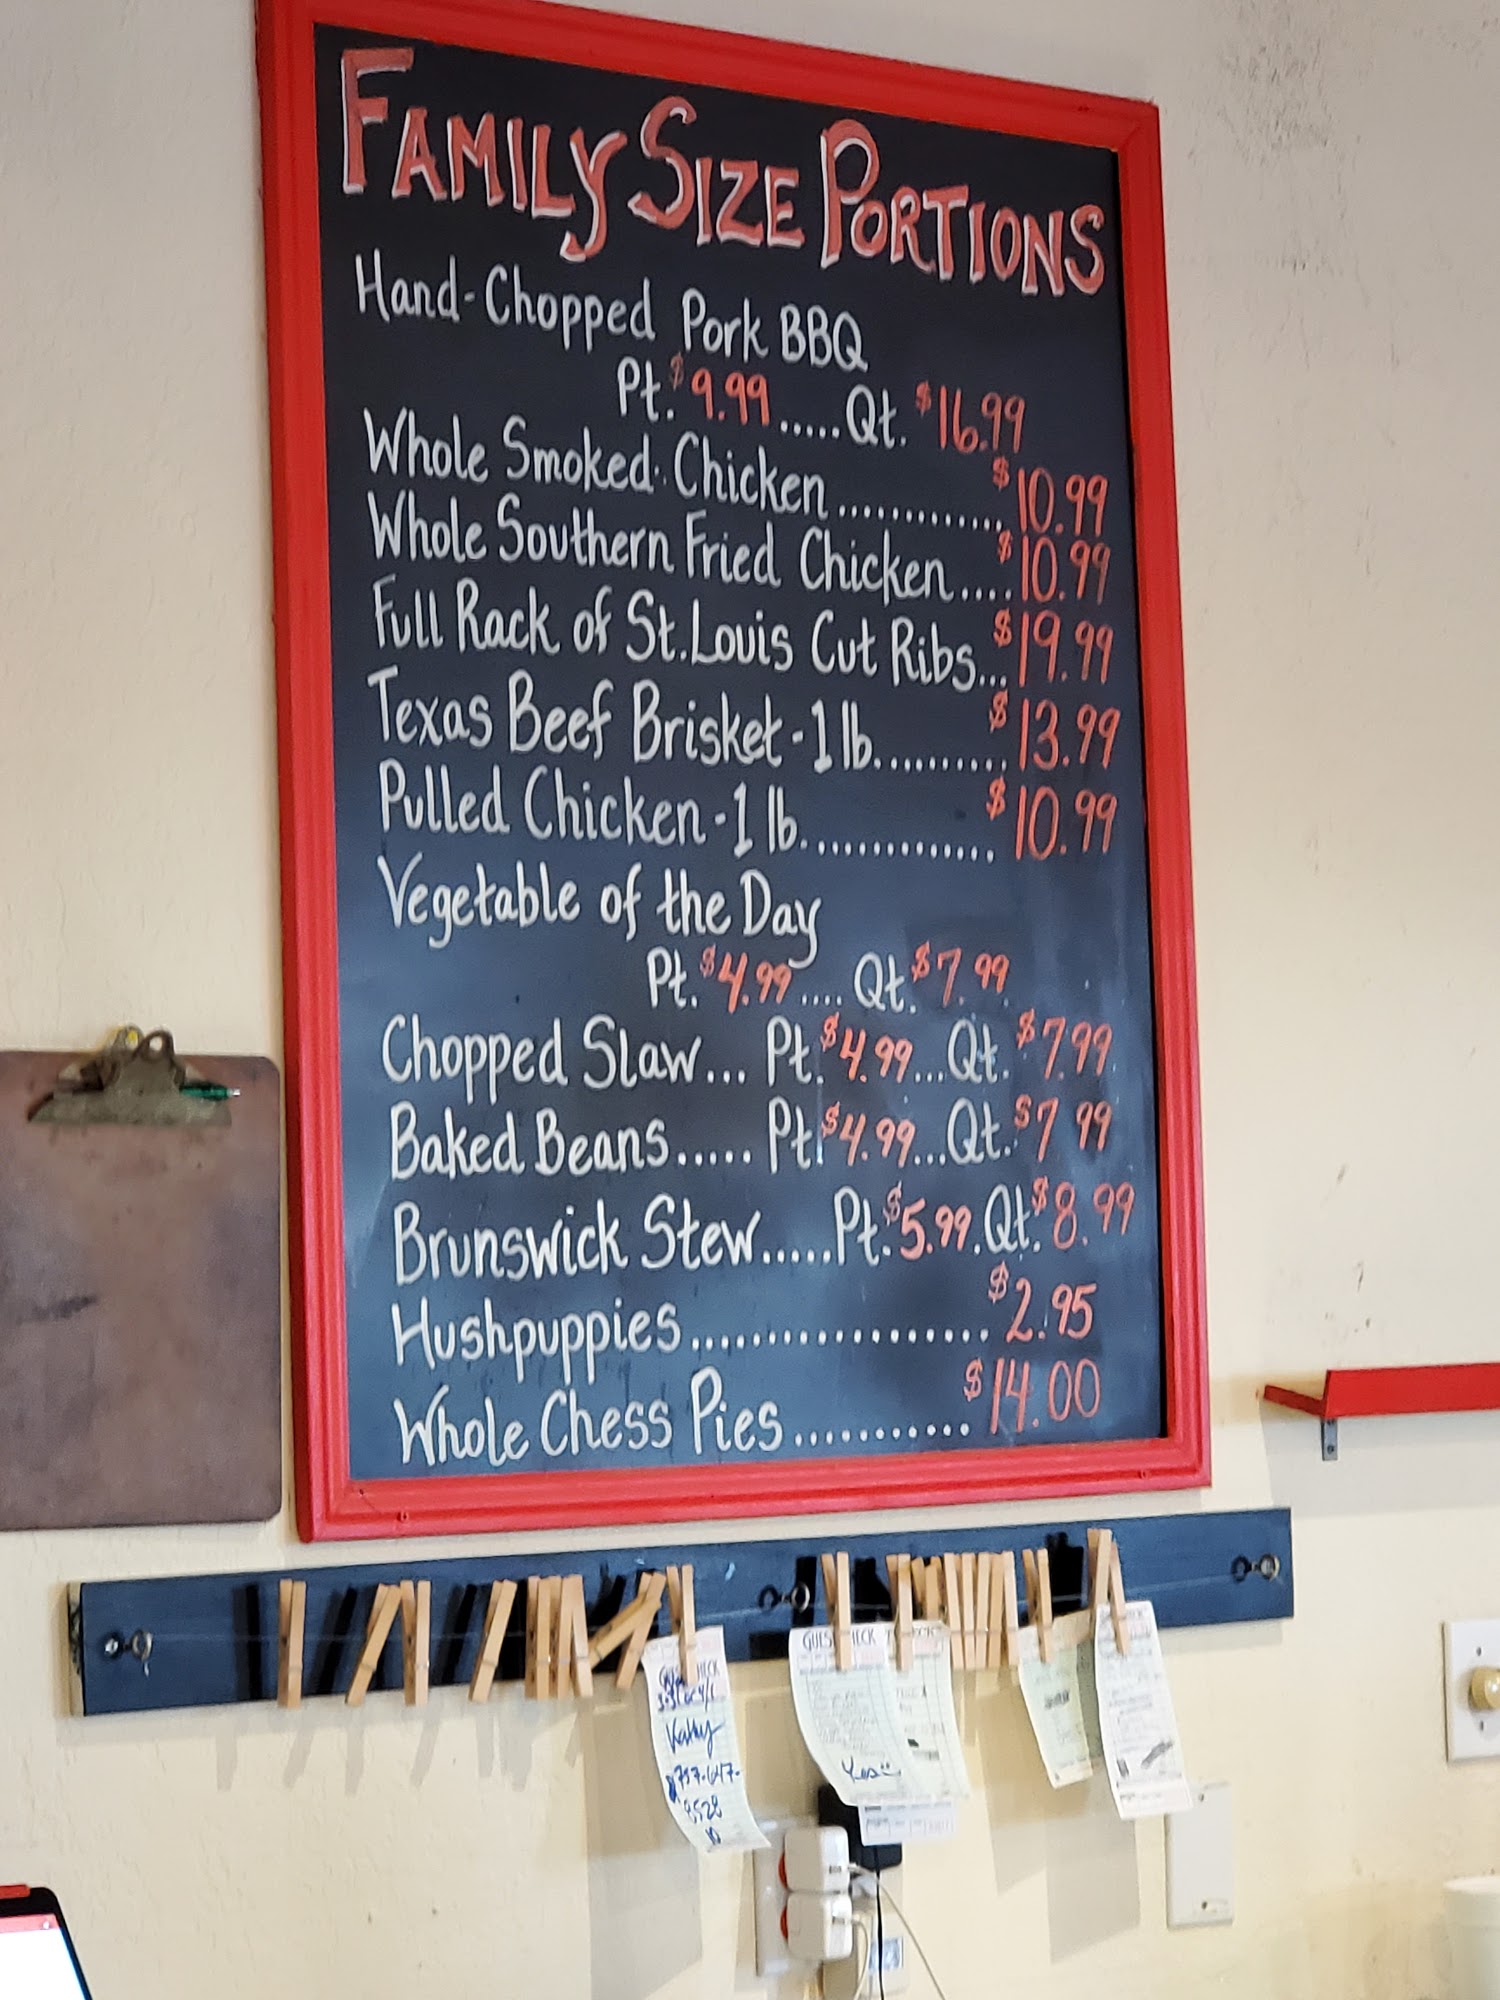 FAMILY SIZE PORTIONS
Hand-Chopped Pork BBQ
Pt. $9.99.....Qt. $16.99
Whole Smoked Chicken............. $10.99
Whole Southern Fried Chicken.... $10.99
Full Rack of St. Louis Cut Ribs... $19.99
Texas Beef Brisket - 1 lb.......... $13.99
Pulled Chicken - 1 lb.............. $10.99
Vegetable of the Day
Pt. $4.99.... Qt. $7.99
Chopped Slaw... Pt. $4.99...Qt. $7.99
Baked Beans..... Pt. $4.99...Qt. $7.99
Brunswick Stew.....Pt. $5.99. Qt. $8.99
Hushpuppies.................. $2.95
Whole Chess Pies........... $14.00
Kathy
757-647-
8528
GUEST CHECK
Yes